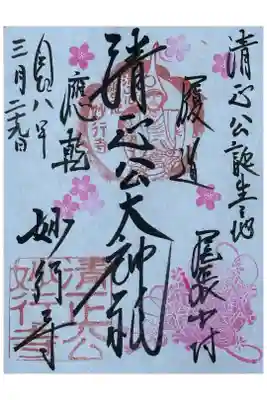 清正公誕生之地
尾張中村
履道
清正公大神祇
應乾
妙行寺
八年
三月二九日
清正公
妙行寺
妙行寺